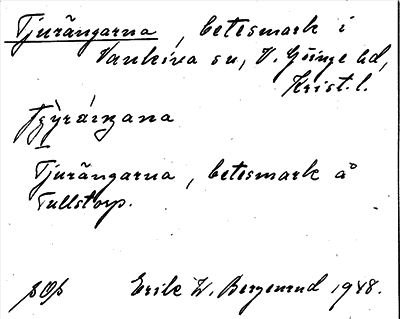 Tjurängarna, betesmark i
Vankiva sn, V. Göinge hd,
Krist. l.
Tjurängarna, betesmark å
Tullstorp.
Erik W. Bergenrud 1948.